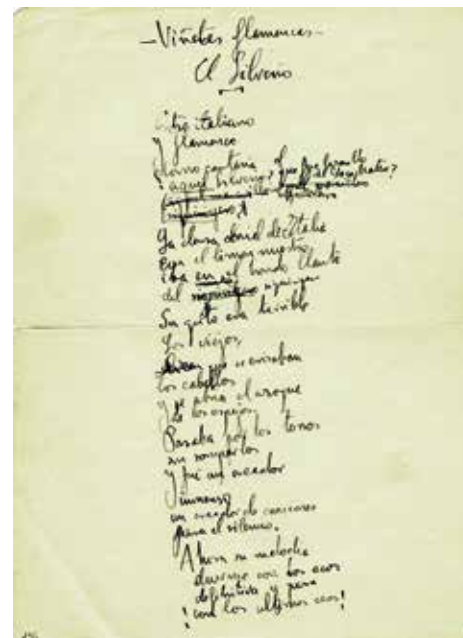 -Viñetas flamencas-
El Silverio
Entre italiano
y flamenco
como cantaria
aquel Silverio?
La densa miel de Italia
con el limon nuestro
iba en el hondo llanto
del
Su grito era terrible
Los viejos
dicen que se erizaban
los cabellos
y se abria el azogue
de los espejos
Pasaba por los tonos
sin romperlos
y fué un creador
inmenso
un creador de canciones
para el silencio.
Ahora su melodia
duerme con los ecos
definitiva y pura
¡con los ultimos ecos!